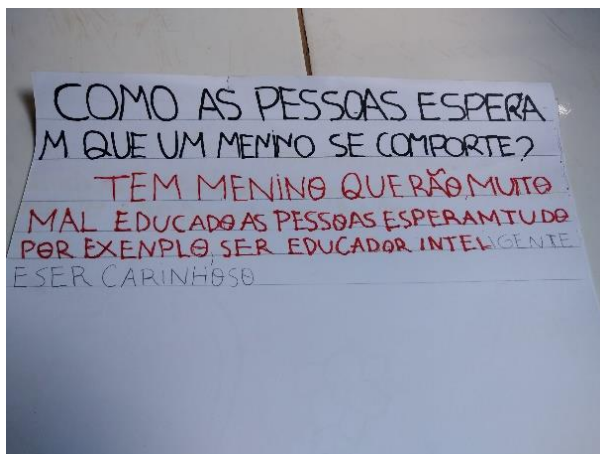 COMO AS PESSOAS ESPERA
M QUE UM MENINO SE COMPORTE?
TEM MENINO QUE RÃO, MUITO
MAL EDUCADO AS PESSOAS ESPERAM TUDO
POR EXENPLO, SER EDUCADOR INTELIGENTE
E SER CARINHOSO